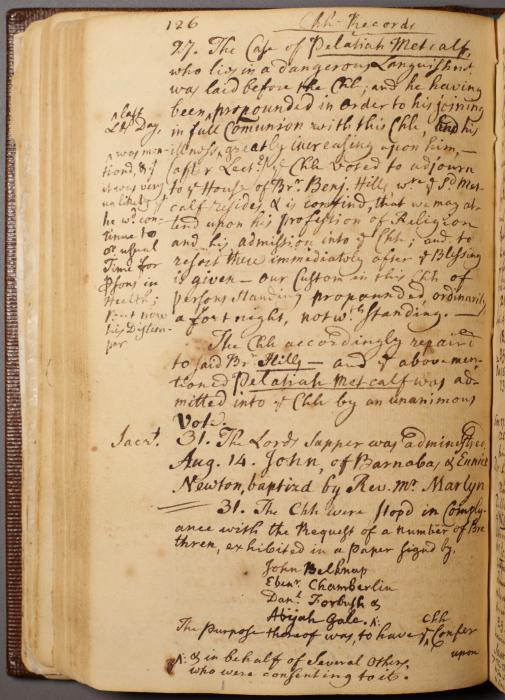 126 Chh Records
27. The Case of Pelatiah Metcalf,
who lies in a dangerous Languishmt.
was laid before the Chh; and he having
been ^ propounded in order to his joining
in full Comunion with this Chh, and his
illness ^ greatly increasing upon him,—
(after Lecte.) ye Chh Voted to adjourn
to ye House of Brr. Benj. Hills, wre ye Sd Met-
calf resides, & is confind, that we may at-
tend upon his profession of Religion
and his admission into ye Chh; and to
resort there immediately after ye Blessing
is given — our Custom in this Chh of
persons standing propounded, ordinarily
a fortnight, notwthstanding. —
^ last
Lds Day,
^ was men-
tiond, & yt
it was very
unlikely yt
he wd. con-
tinue to
or usual
Time for
Psons in
Health;
his Distem-
per
The Chh accordingly repaird
to said Brr Hills — and ye abovemen-
tioned Pelatiah Metcalf was ad-
mitted into ye Chh by an unanimous
Vote.
Sacrt. 31. The Lords Supper was administred.
Aug. 14. John, of Barnabas & Eunice
Newton, baptizd by Rev. Mr. Martyn
31. The Chh were stopd in Comply-
ance with the Request of a number of Bre
thren, exhibited in a paper signd by,
John Belknap
Ebenr. Chamberlin
Danl. Forbush &
Abijah Gale. ^:
The purpose thereof was, to have ye Chh confer
upon
^: & in behalf of several others,
who were consenting to it.